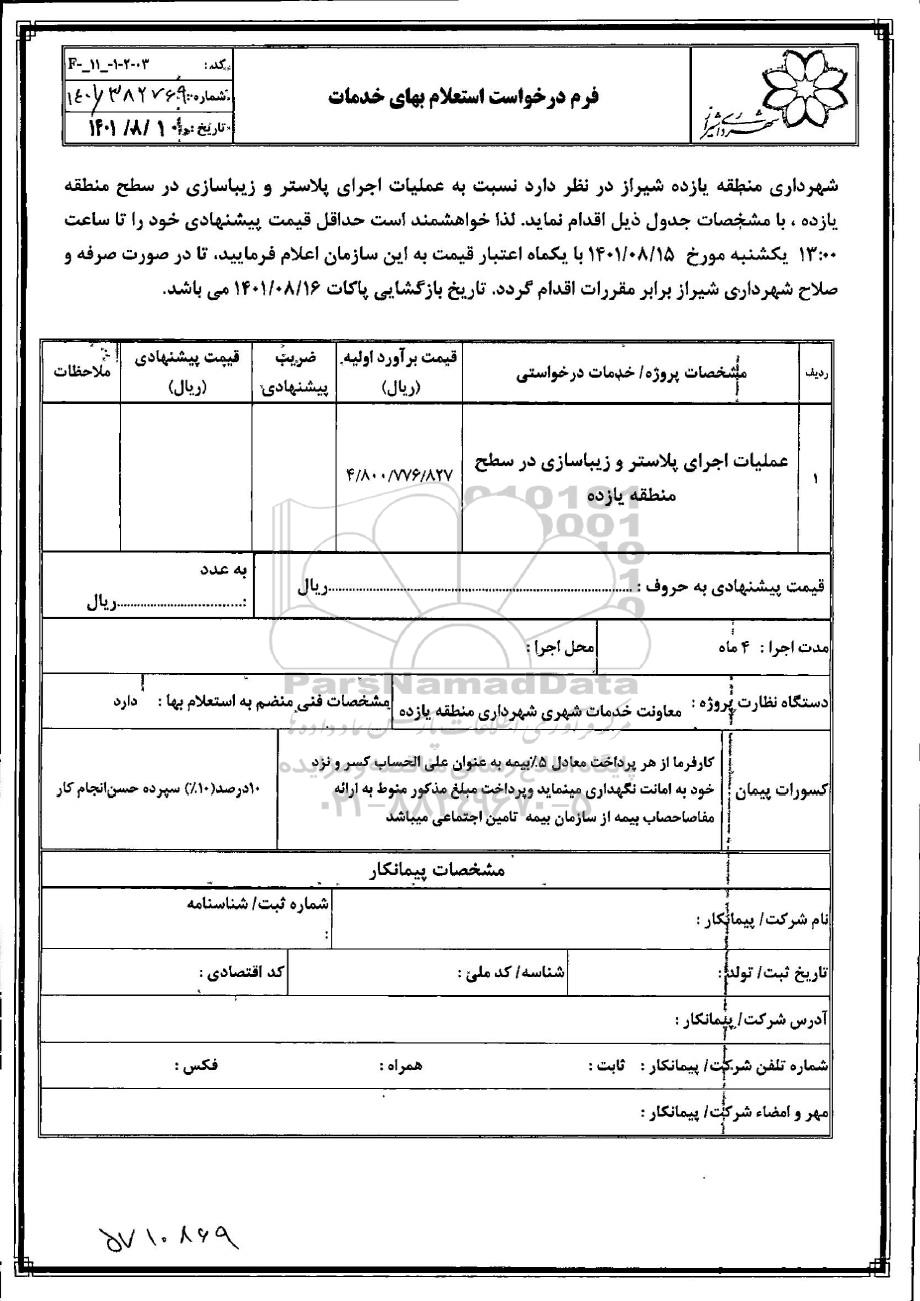 شهرداری شیراز
فرم درخواست استعلام بهای خدمات
کد: F-_۱۱_-۱-۲-۰۳
شماره: ۱۴۰۱/۳۸۲۷۶۹
تاریخ: ۱۴۰۱/۸/۱۰
شهرداری منطقه یازده شیراز در نظر دارد نسبت به عملیات اجرای پلاستر و زیباسازی در سطح منطقه
یازده ، با مشخصات جدول ذیل اقدام نماید. لذا خواهشمند است حداقل قیمت پیشنهادی خود را تا ساعت
۱۳:۰۰ یکشنبه مورخ ۱۴۰۱/۰۸/۱۵ با یکماه اعتبار قیمت به این سازمان اعلام فرمایید، تا در صورت صرفه و
صلاح شهرداری شیراز برابر مقررات اقدام گردد. تاریخ بازگشایی پاکات ۱۴۰۱/۰۸/۱۶ می باشد.
ردیف
مشخصات پروژه/ خدمات درخواستی
قیمت برآورد اولیه
(ریال)
ضریب
پیشنهادی
قیمت پیشنهادی
(ریال)
ملاحظات
۱
عملیات اجرای پلاستر و زیباسازی در سطح
منطقه یازده
۴/۸۰۰/۷۷۶/۸۲۷
قیمت پیشنهادی به حروف : ..........ریال
به عدد
:..........ریال
مدت اجرا : ۴ ماه
محل اجرا :
دستگاه نظارت پروژه : معاونت خدمات شهری شهرداری منطقه یازده
مشخصات فنی منضم به استعلام بها : دارد
کسورات پیمان
کارفرما از هر پرداخت معادل ۵٪بیمه به عنوان علی الحساب کسر و نزد
خود به امانت نگهداری مینماید وپرداخت مبلغ مذکور منوط به ارائه
مفاصاحساب بیمه از سازمان بیمه تامین اجتماعی میباشد
۱۰درصد(۱۰٪) سپرده حسن‌انجام کار
مشخصات پیمانکار
نام شرکت/ پیمانکار :
شماره ثبت/ شناسنامه
:
تاریخ ثبت/ تولد :
شناسه/ کد ملی :
کد اقتصادی :
آدرس شرکت/ پیمانکار :
شماره تلفن شرکت/ پیمانکار : ثابت : همراه : فکس :
مهر و امضاء شرکت/ پیمانکار :
ParsNamadData
۰۲۱-۸۸۳۴۹۶۷۰-۵
۵۷۱۰۸۶۹